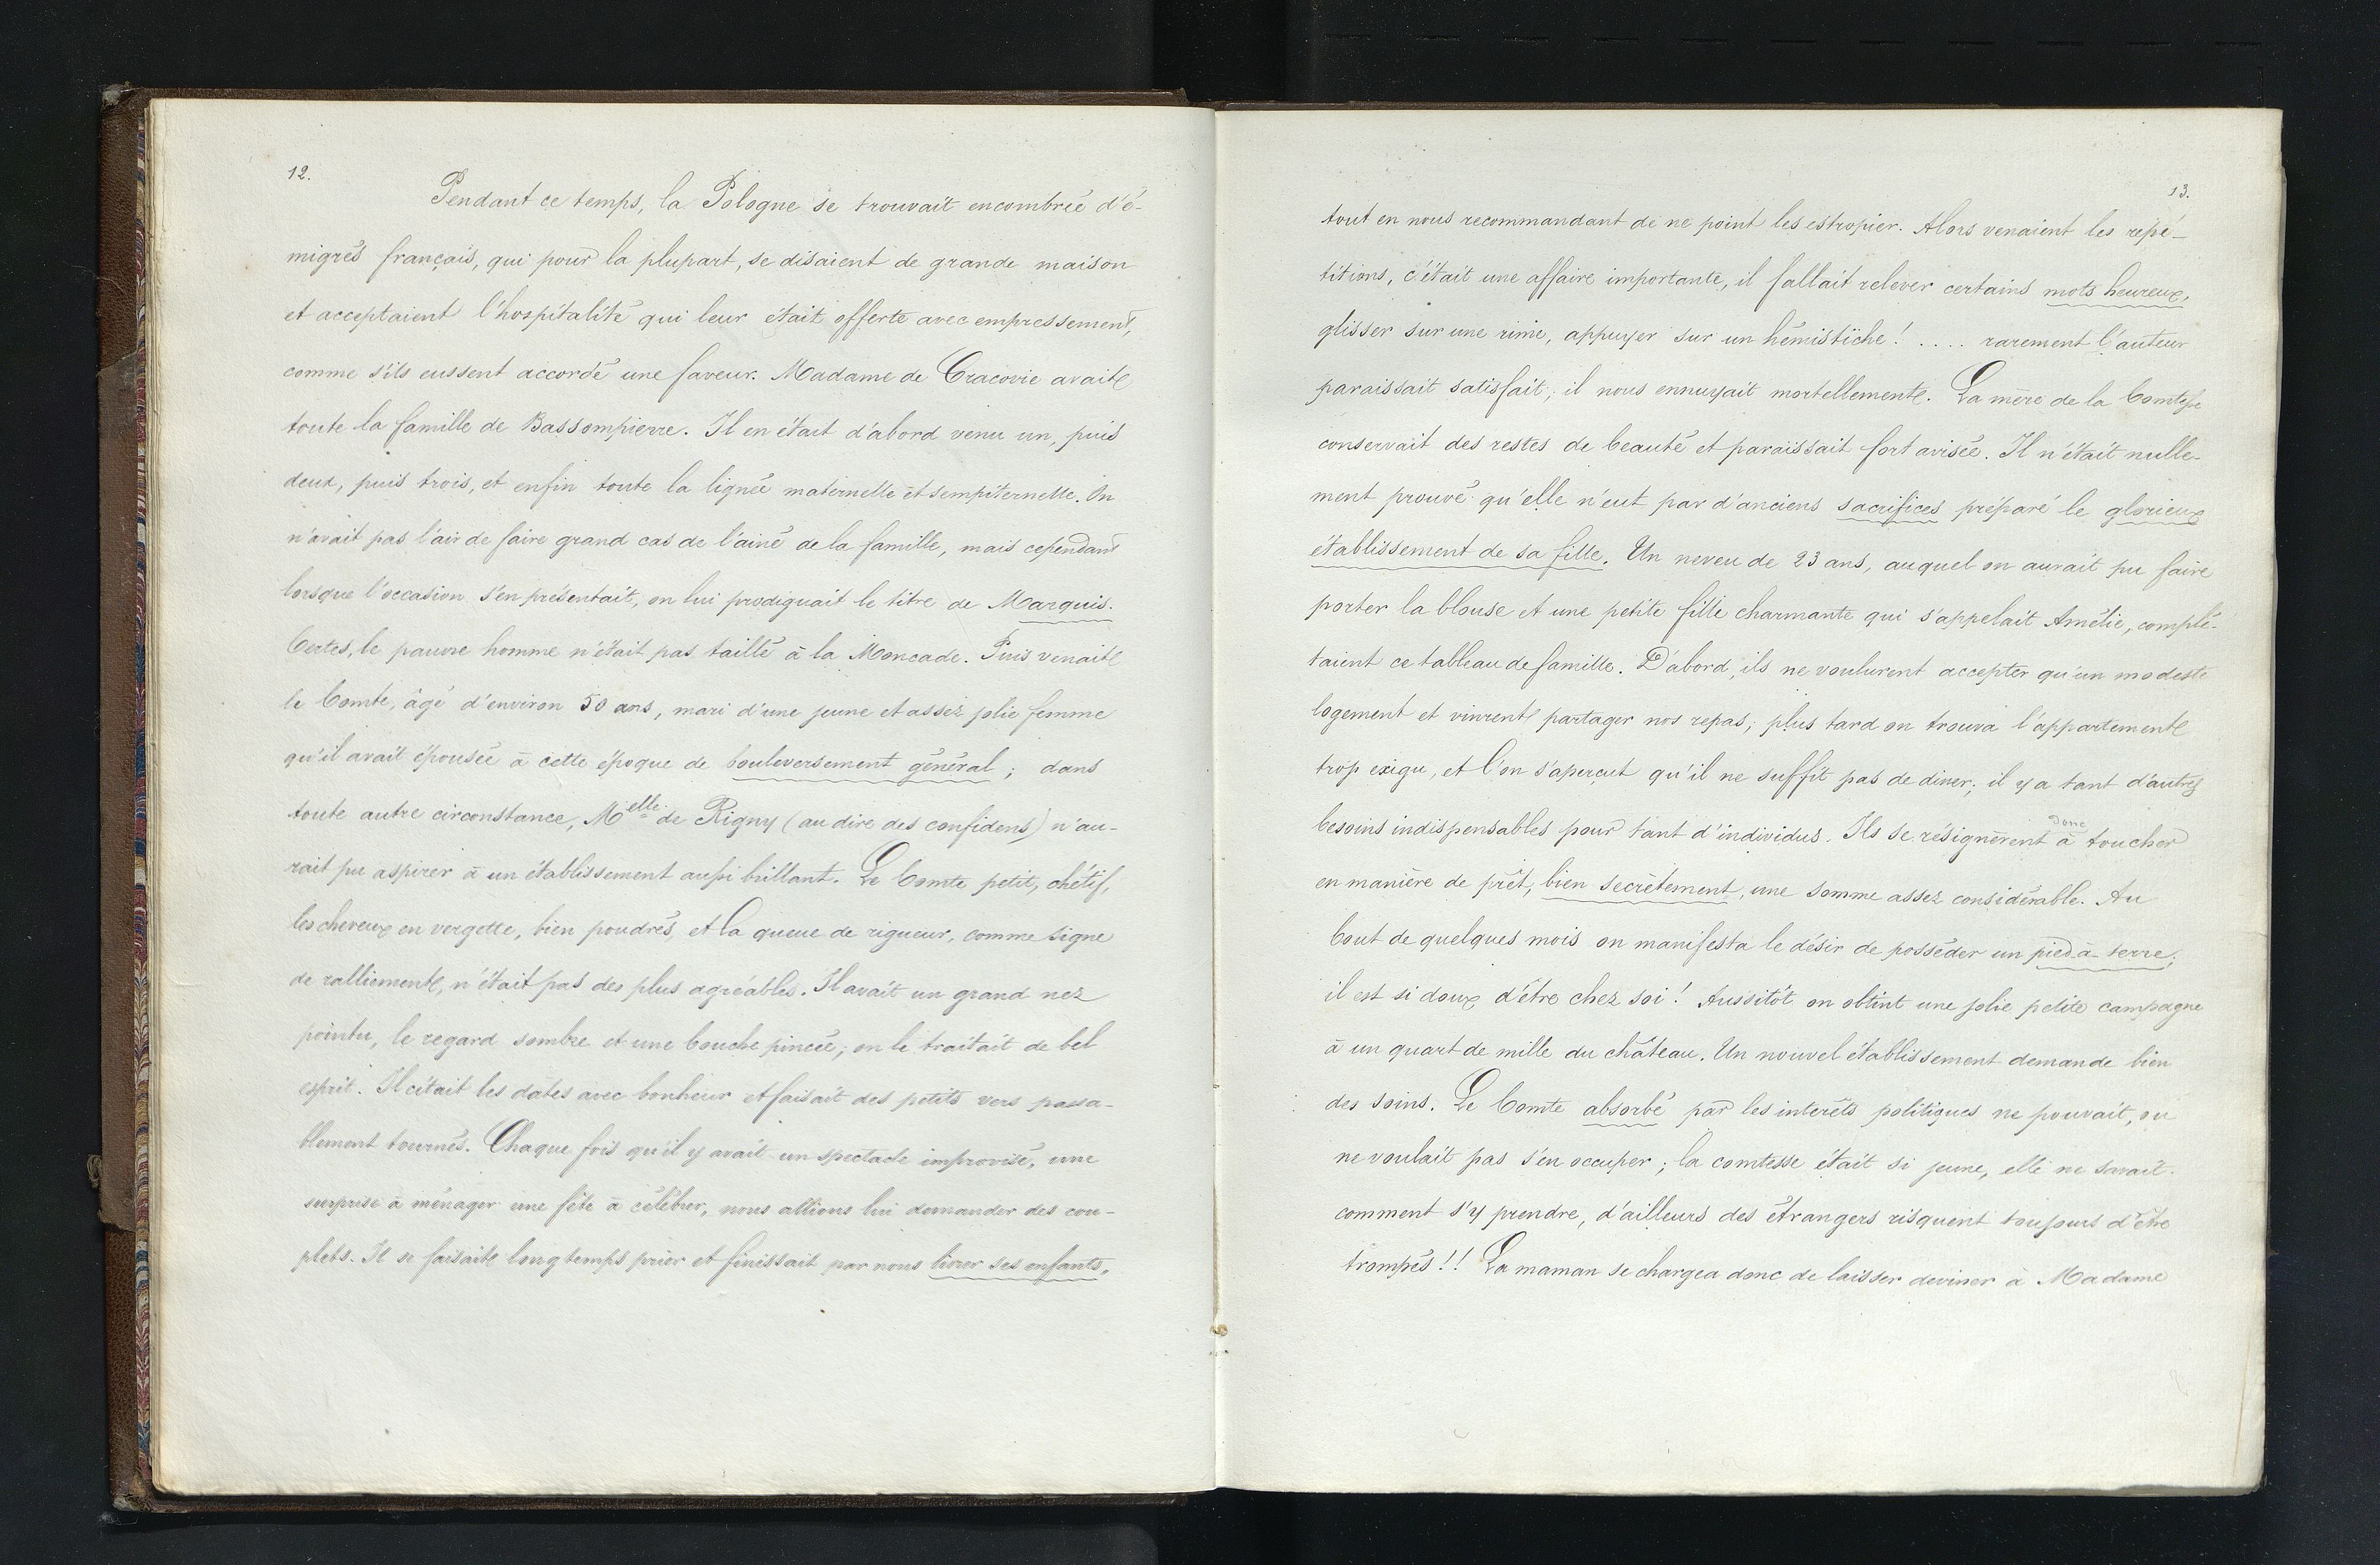 12.
Pendant ce temps, la Pologne se trouvait encombrée d'é-
migrés français, qui pour la plupart, se disaient de grande maison
et acceptaient l'hospitalité qui leur était offerte avec empressement,
comme s'ils eussent accordé une faveur. Madame de Cracovie avait
toute la famille de Bassompierre. Il en était d'abord venu un, puis
deux, puis trois, et enfin toute la lignée maternelle et sempiternelle. On
n'avait pas l'air de faire grand cas de l'ainé de la famille, mais cependant
lorsque l'occasion s'en présentait, on lui prodiguait le titre de Marquis.
Certes, le pauvre homme n'était pas taillé à la Moncade. Puis venait
le Comte, âgé d'environ 50 ans, mari d'une jeune et assez jolie femme
qu'il avait épousée à cette époque de bouleversement général ; dans
toute autre circonstance, Melle de Rigny (au dire des confidens) n'au-
rait pu aspirer à un établissement aussi brillant. Le Comte petit, chétif,
les cheveux en vergette, bien poudrés, et la queue de rigueur, comme signe
de ralliement, n'était pas des plus agréables. Il avait un grand nez
pointu, le regard sombre et une bouche pincée ; on le traitait de bel
esprit. Il citait les dates avec bonheur et faisait des petits vers passa-
blement tournés. Chaque fois qu'il y avait un spectacle improvisé, une
surprise à ménager une fête à célébrer, nous allions lui demander des cou-
plets. Il se faisait longtemps prier et finissait par nous livrer ses enfants,
13.
tout en nous recommandant de ne point les estropier. Alors venaient les répé-
titions, c'était une affaire importante, il fallait relever certains mots heureux,
glisser sur une rime, appuyer sur un hémistiche ! .... rarement l'auteur
paraissait satisfait ; il nous ennuyait mortellement. La mère de la Comtesse
conservait des restes de beauté et paraissait fort avisée. Il n'était nulle-
ment prouvé qu'elle n'eut par d'anciens sacrifices préparé le glorieux
établissement de sa fille. Un neveu de 23 ans, auquel on aurait pu faire
porter la blouse et une petite fille charmante qui s'appelait Amélie, complé-
taient ce tableau de famille. D'abord, ils ne voulurent accepter qu'un modeste
logement et vinrent partager nos repas ; plus tard on trouva l'appartement
trop exigu, et l'on s'aperçut qu'il ne suffit pas de diner ; il y a tant d'autres
besoins indispensables pour tant d'individus. Ils se résignèrent donc à toucher
en manière de prêt, bien secrètement, une somme assez considérable. Au
bout de quelques mois on manifesta le désir de posséder un pied-à-terre ;
il est si doux d'être chez soi ! Aussitôt on obtint une jolie petite campagne
à un quart de mille du château. Un nouvel établissement demande bien
des soins. Le Comte absorbé par les interêts politiques ne pouvait, ou
ne voulait pas s'en occuper ; la comtesse était si jeune, elle ne savait
comment s'y prendre, d'ailleurs des étrangers risquent toujours d'être
trompés !! La maman se chargea donc de laisser deviner à Madame